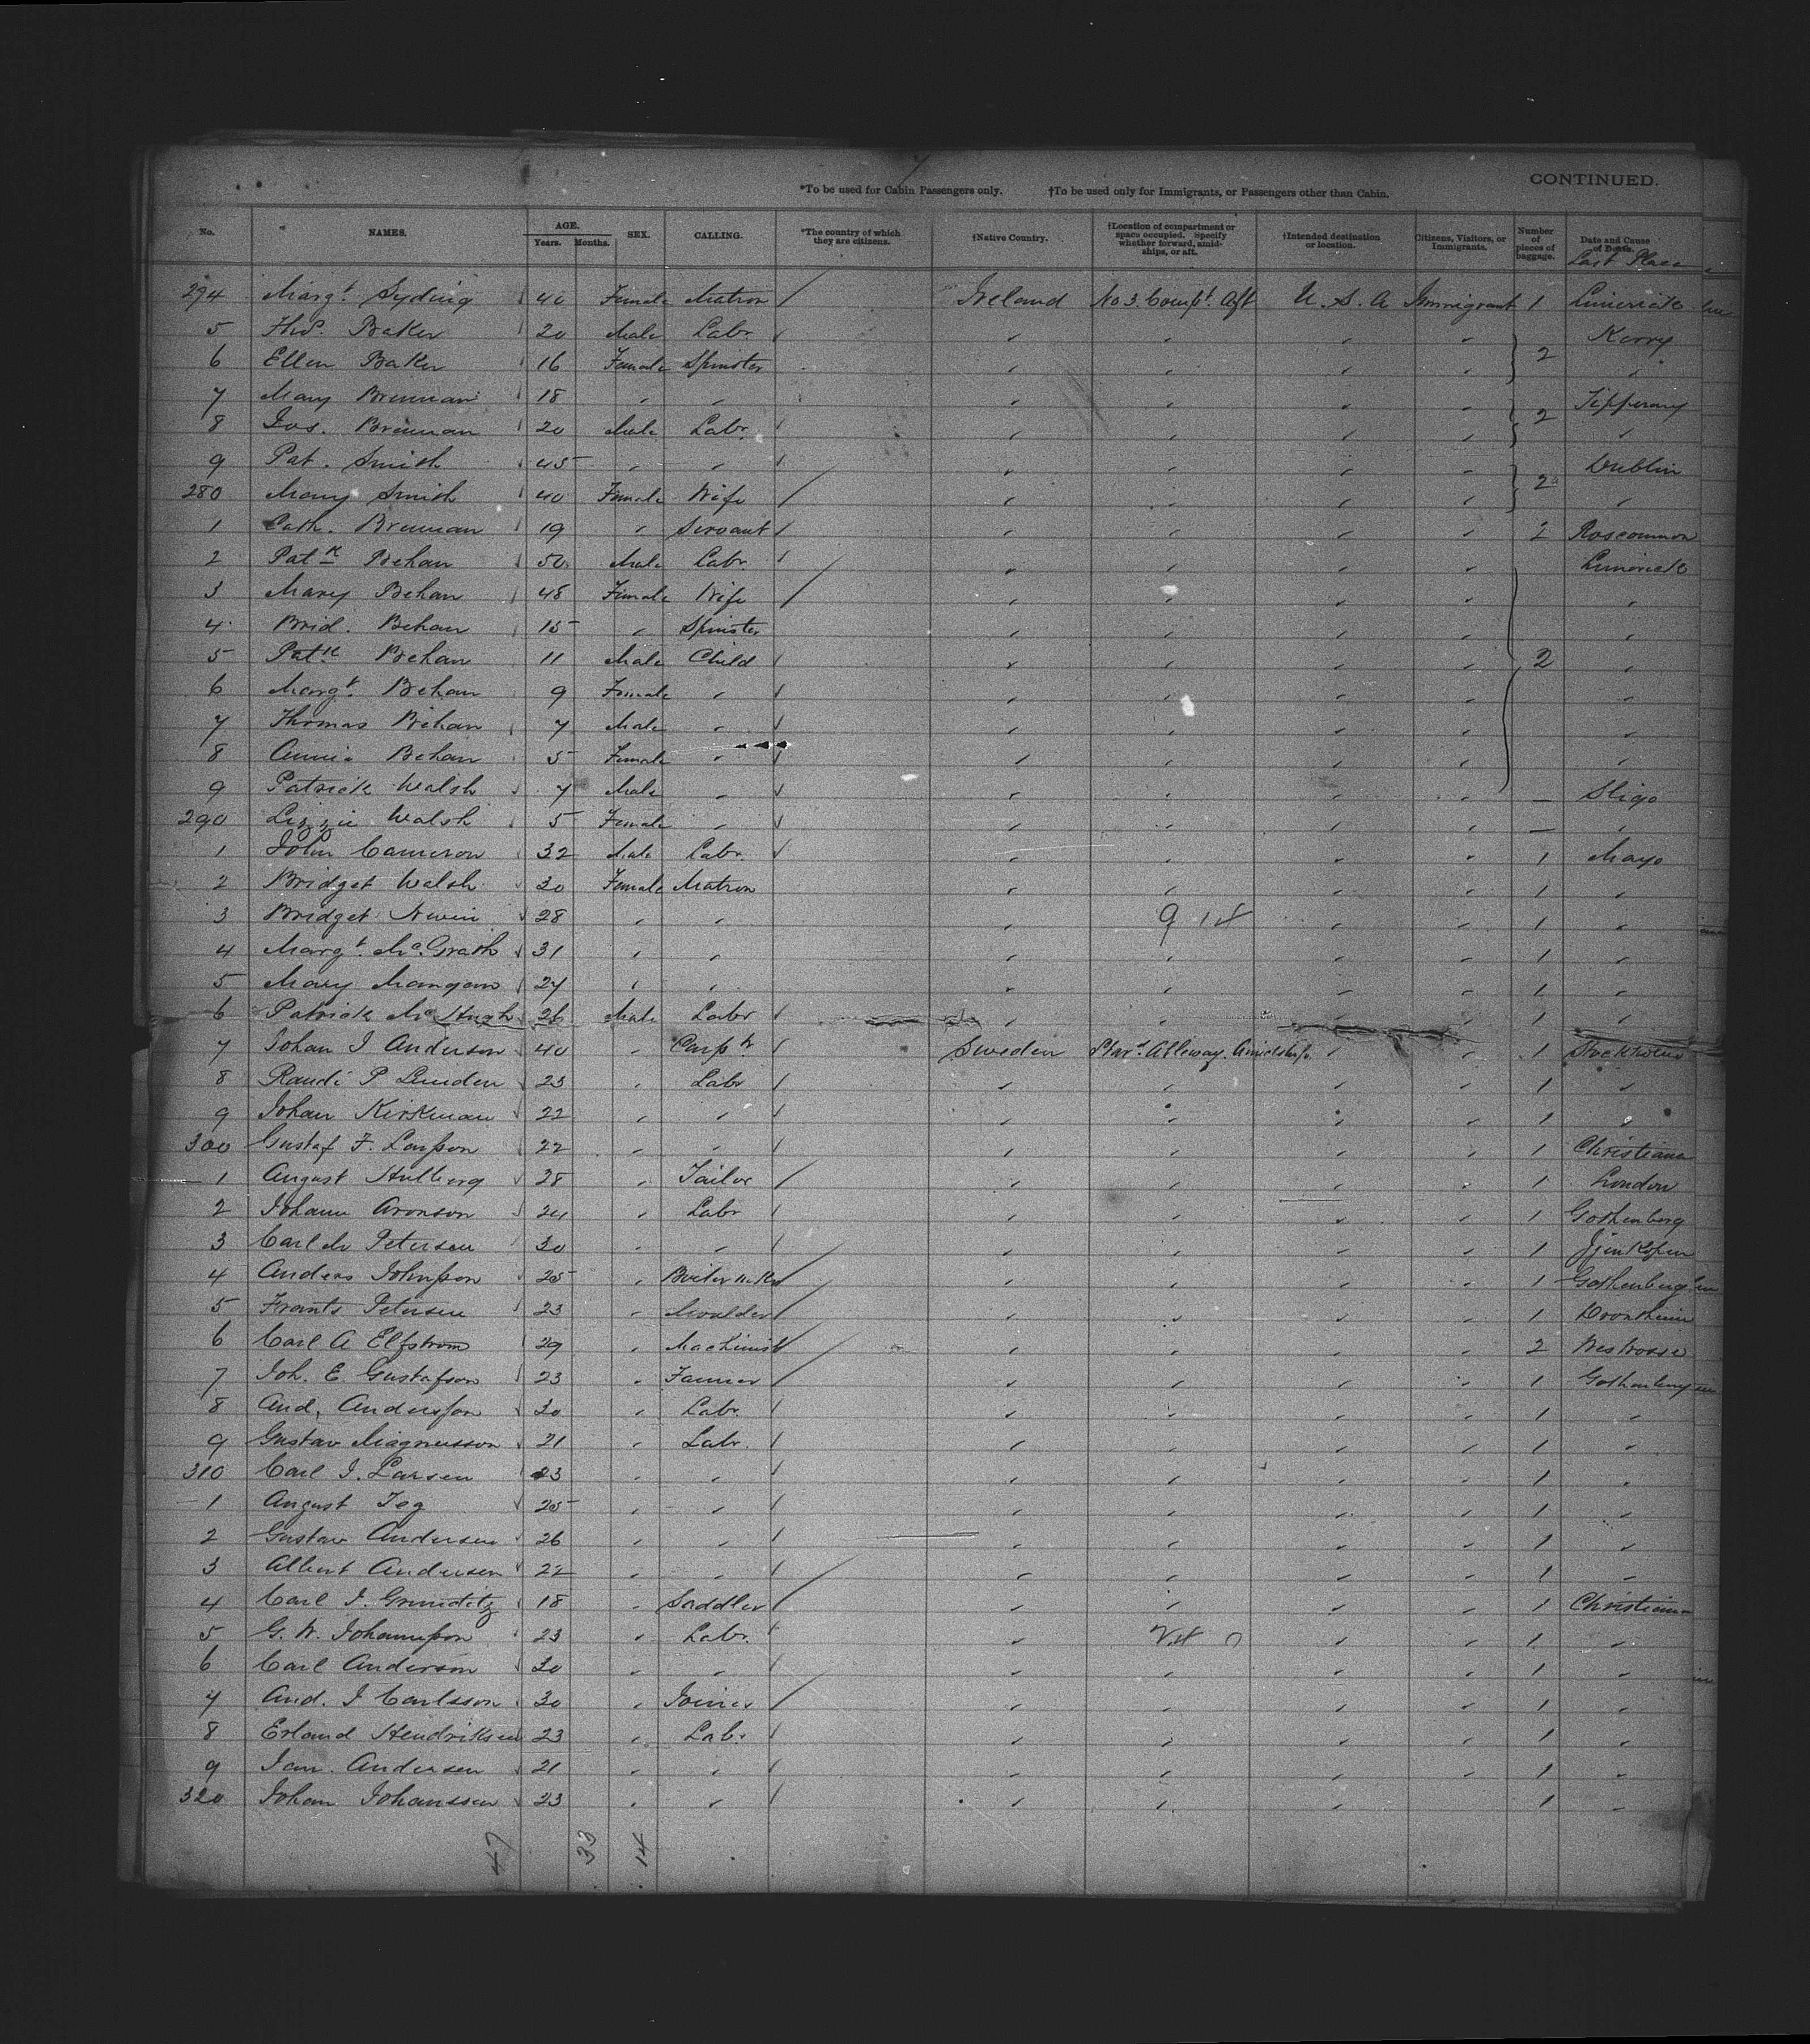 CONTINUED.
*To be used for Cabin Passengers only. †To be used only for Immigrants, or Passengers other than Cabin.
No. NAMES. AGE. Years. Months. SEX. CALLING. *The country of which they are citizens. †Native Country. †Location of compartment or space occupied. Specify whether forward, amidships, or aft. †Intended destination or location. Citizens, Visitors, or Immigrants. Number of pieces of baggage. Date and Cause of Death. Last Place
294 Margt. Syding 40 Female Matron Ireland No 3. Compt. Aft U. S. A Immigrant 1 Limerick
5 Thos. Baker 20 Male Labr. " " " " Kerry
6 Ellen Baker 16 Female Spinster " " " " 2 "
7 Mary Brennan 18 " " " " " " Tipperary
8 Jos. Brennan 20 Male Labr. " " " " 2 "
9 Pat. Smith 45 " " " " " " Dublin
280 Mary Smith 40 Female Wife " " " " 2 "
1 Cath. Brennan 19 " Servant " " " " 2 Roscommon
2 Patk Behan 50 Male Labr. " " " " Limerick
3 Mary Behan 48 Female Wife " " " " "
4 Brid. Behan 15 " Spinster " " " " "
5 Patk Behan 11 Male Child " " " " 2 "
6 Margt. Behan 9 Female " " " " " "
7 Thomas Behan 7 Male " " " " " "
8 Annie Behan 5 Female " " " " " "
9 Patrick Walsh 7 Male " " " " " — Sligo
290 Lizzie Walsh 5 Female " " " " " — "
1 John Cameron 32 Male Labr. " " " " 1 Mayo
2 Bridget Walsh 30 Female Matron " " " " 1 "
3 Bridget 28 " " " " " 1 "
4 Margt. McGrath 31 " " " " " " 1 "
5 Mary Mangan 24 " " " " " " 1 "
6 Patrick McHugh 26 Male Labr " " " " 1 "
7 Johan J Anderson 40 " Carpr Sweden Star. Alleway. Amidships " " 1 Stockholm
8 Randi P Lunden 23 " Labr " " " " 1 "
9 Johan Kirkman 22 " " " " " " 1 "
300 Gustaf F. Larsson 22 " " " " " " 1 Christiana
1 August Hulberg 28 " Tailor " " " " 1 London
2 Johann Aronson 24 " Labr " " " " 1 Gothenberg
3 Carl M Petersen 30 " " " " " " 1
4 Anders Johnsson 25 " Boiler mkr " " " " 1 Gothenburg
5 Frants Petersen 23 " Moulder " " " " 1 Drontheim
6 Carl A Elfstrom 29 " Machinist " " " " 2
7 Joh. E. Gustafson 23 " Farmer " " " " 1 Gothenburg
8 And, Andersson 30 " Labr. " " " " 1 "
9 Gustav Magnusson 21 " Labr. " " " " 1 "
310 Carl J. Larsen 23 " " " " " " 1 "
1 August Teg 25 " " " " " " 1 "
2 Gustav Andersen 26 " " " " " " 1 "
3 Albert Andersen 22 " " " " " " 1 "
4 Carl J. Grunditz 18 " Saddler " " " " 1 Christiana
5 G. W. Johannsson 23 " Labr. " " " 1 "
6 Carl Anderson 30 " " " " " " 1 "
7 And. J Carlsson 30 " Joiner " " " " 1 "
8 Erland Hendriksen 23 " Labr " " " " 1 "
9 Jan. Andersen 21 " " " " " " 1 "
320 Johan Johanssen 23 " " " " " 1 "
47 33 14